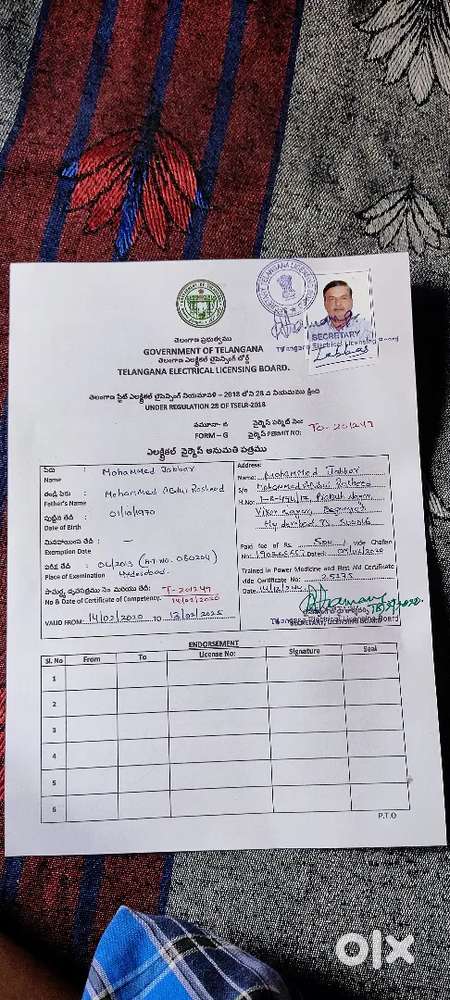 తెలంగాణ ప్రభుత్వము
GOVERNMENT OF TELANGANA
తెలంగాణ ఎలక్ట్రికల్ లైసెన్సింగ్ బోర్డ్
TELANGANA ELECTRICAL LICENSING BOARD.
SECRETARY
Telangana Electrical Licensing Board
తెలంగాణ స్టేట్ ఎలక్ట్రికల్ లైసెన్సింగ్ నియమావళి - 2018 లోని 28 వ నియమము క్రింద
UNDER REGULATION 28 OF TSELR-2018
నమూనా - జి
FORM - G
వైర్మెన్ పర్మిట్ నెం:
వైర్మెన్ PERMIT NO:
ఎలక్ట్రికల్ వైర్మెన్ అనుమతి పత్రము
పేరు :
Name
Mohammed Jabbar
తండ్రి పేరు :
Father's Name
Mohammed Abdul Rasheed
పుట్టిన తేది :
Date of Birth
01/10/1970
మినహాయింపు తేది :
Exemption Date
పరీక్ష తేది :
Place of Examination
06/2013 (H.T NO. 080204)
Hyderabad.
No & Date of Certificate of Competency:
T-201247
14/02/2020
VALID FROM: 14/02/2020 TO 13/02/2025
Address:
Name: Mohammed Jabbar
S/o Mohammed Abdul Rasheed
H.No: Prakash Nagar,
Vikar Nagar, Begumpet
Hyderabad TS.
Paid fee of Rs. 500/- vide Challan
No: Dated:
Trained in Power Medicine and First Aid Certificate
vide Certificate No: 25175
Date
SECRETARY, LICENSING BOARD
Telangana Electrical Licensing Board
ENDORSEMENT
Sl. No From To License No: Signature Seal
1
2
3
4
5
6
P.T.O
olx